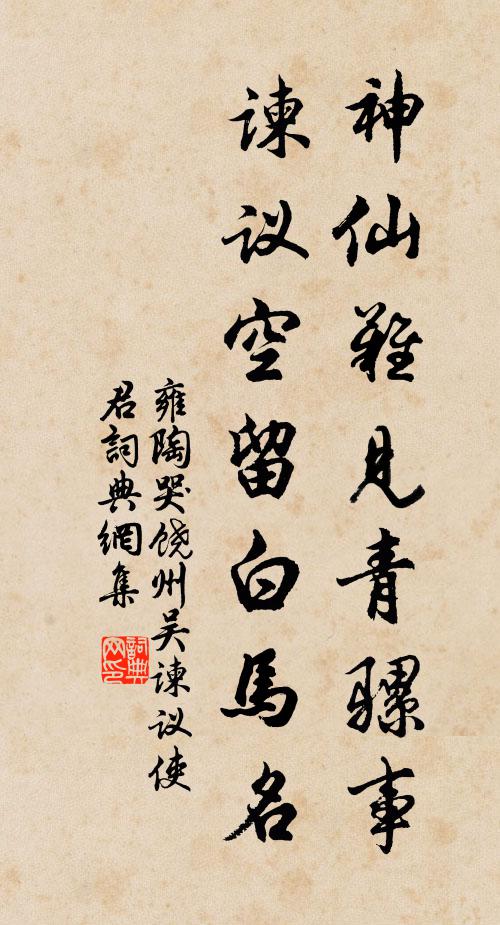 神仙難見青騾事
谏议空留白馬名
雍陶哭饶州吴谏议使
君詞典網集
詞典网印